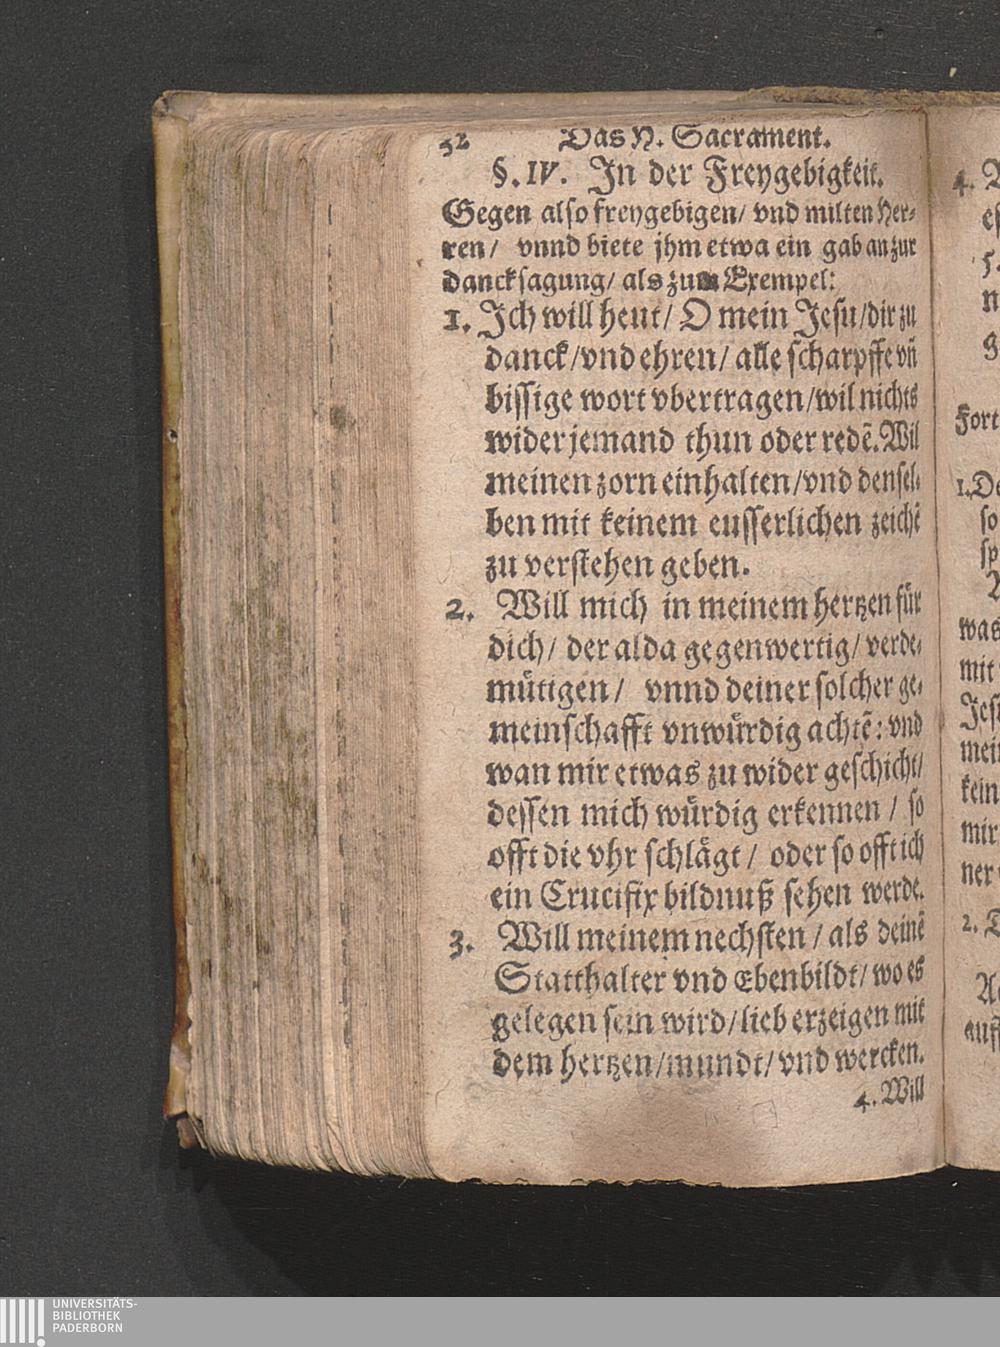 52 Das H. Sacrament.
§. IV. In der Freygebigkeit.
Gegen also freygebigen/ vnd milten Her-
ren/ vnnd biete jhm etwa ein gab an zur
dancksagung/ als zum Exempel:
1. Jch will heut/ O mein Jesu/dir zu
danck/vnd ehren/ alle scharpffe vn̄
bissige wort vbertragen/wil nichts
wider jemand thun oder redē. Wil
meinen zorn einhalten/vnd densel-
ben mit keinem eusserlichen zeichē
zu verstehen geben.
2. Will mich in meinem hertzen für
dich/ der alda gegenwertig/ verde-
mütigen/ vnnd deiner solcher ge-
meinschafft vnwürdig achtē: vnd
wan mir etwas zu wider geschicht/
dessen mich würdig erkennen / so
offt die vhr schlägt / oder so offt ich
ein Crucifix bildnuß sehen werde.
3. Will meinem nechsten / als deinē
Statthalter vnd Ebenbildt/ wo es
gelegen sein wird/ lieb erzeigen mit
dem hertzen/mundt/ vnd wercken.
4. Will
4.
5.
Fort
1. De
so
was
mit
Jes
mein
kein
mir
ner
2.
auff
UNIVERSITÄTS-
BIBLIOTHEK
PADERBORN